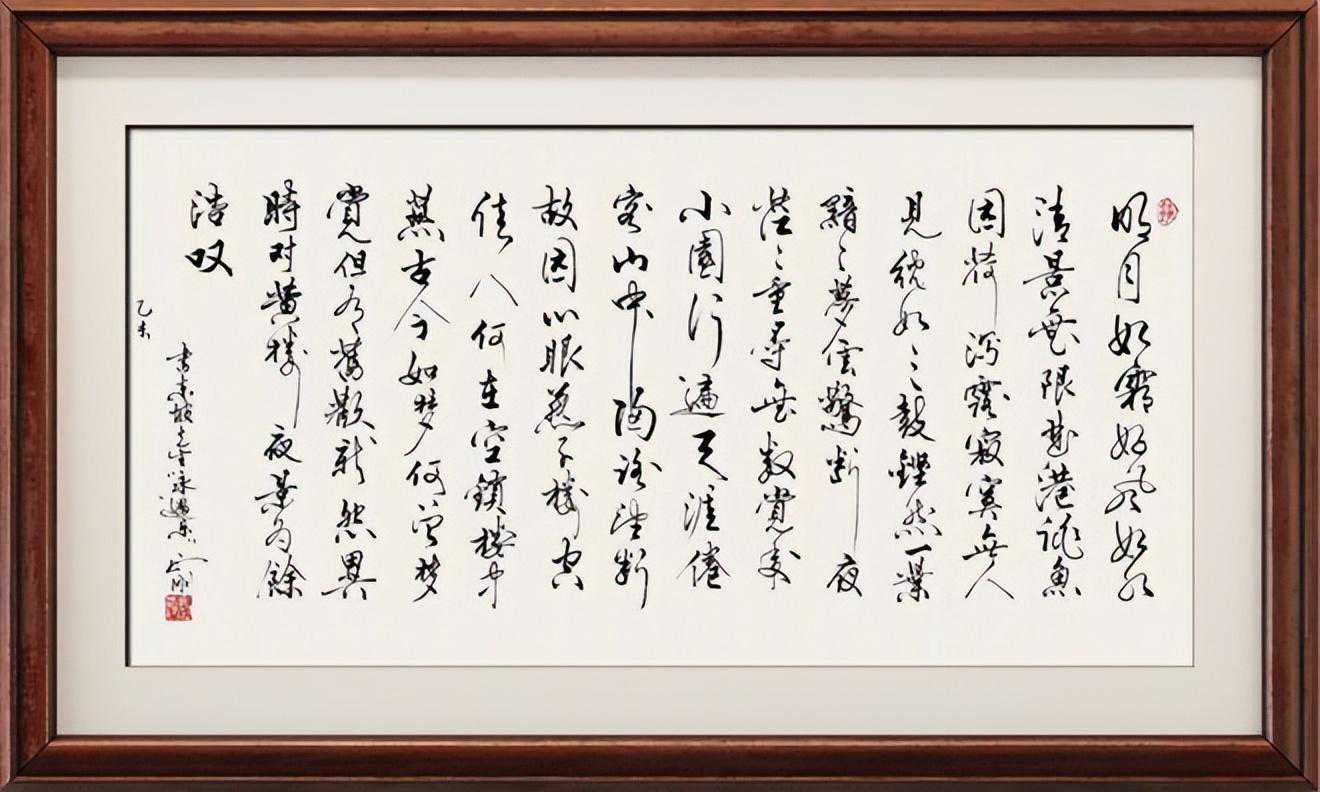 明月如霜好风如水
清景無限曲港跳魚
圆荷泻露寂寞無人
見紞如三鼓鏗然一葉
黯〻夢雲驚断夜
茫〻重尋無處覺來
小園行遍天涯倦
客山中歸路望断
故園心眼燕子樓空
佳人何在空鎖樓中
燕古今如梦何曾梦
覺但有舊歡新怨異
時对黄樓夜景为餘
浩叹
书东坡先生永遇乐
乙未